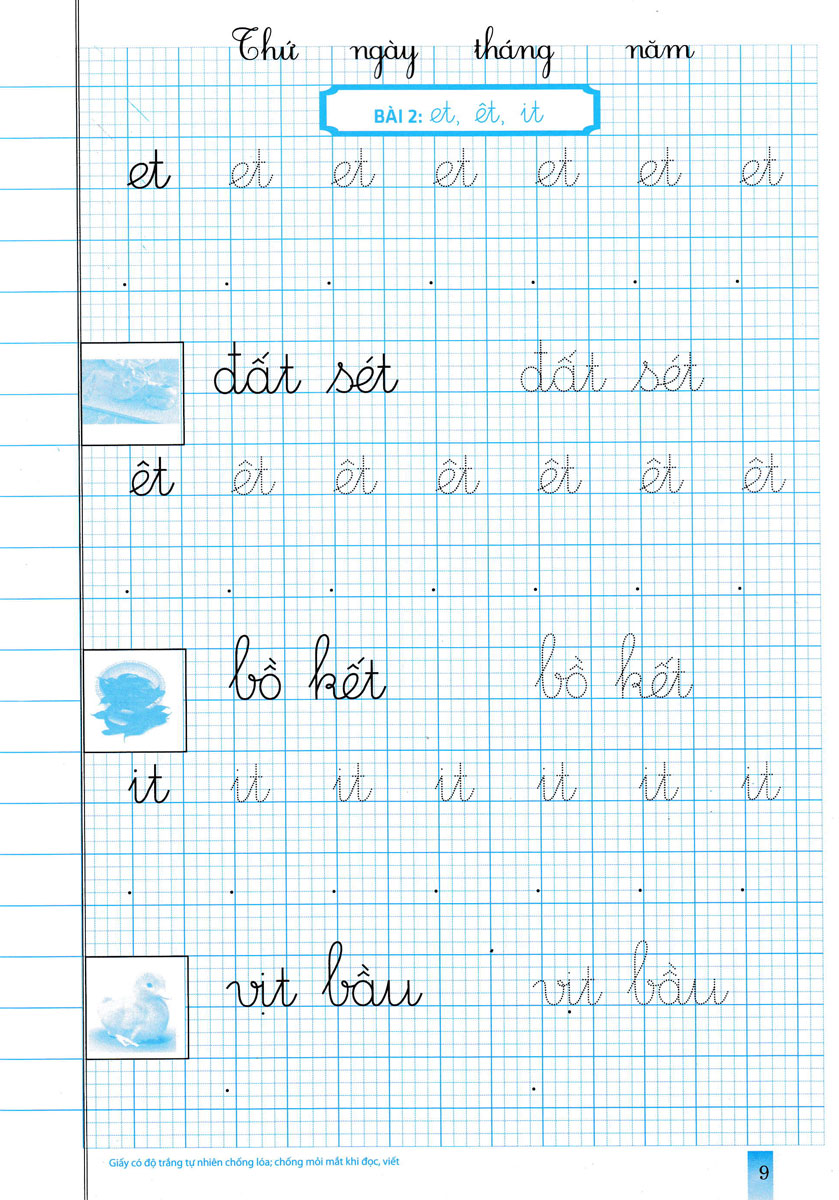 Thứ ngày tháng năm
BÀI 2: et, êt, it
et et et et et et et
đất sét đất sét
êt êt êt êt êt êt êt
bồ kết bồ kết
it it it it it it it
vịt bầu vịt bầu
Giấy có độ trắng tự nhiên chống lóa; chống mỏi mắt khi đọc, viết
9